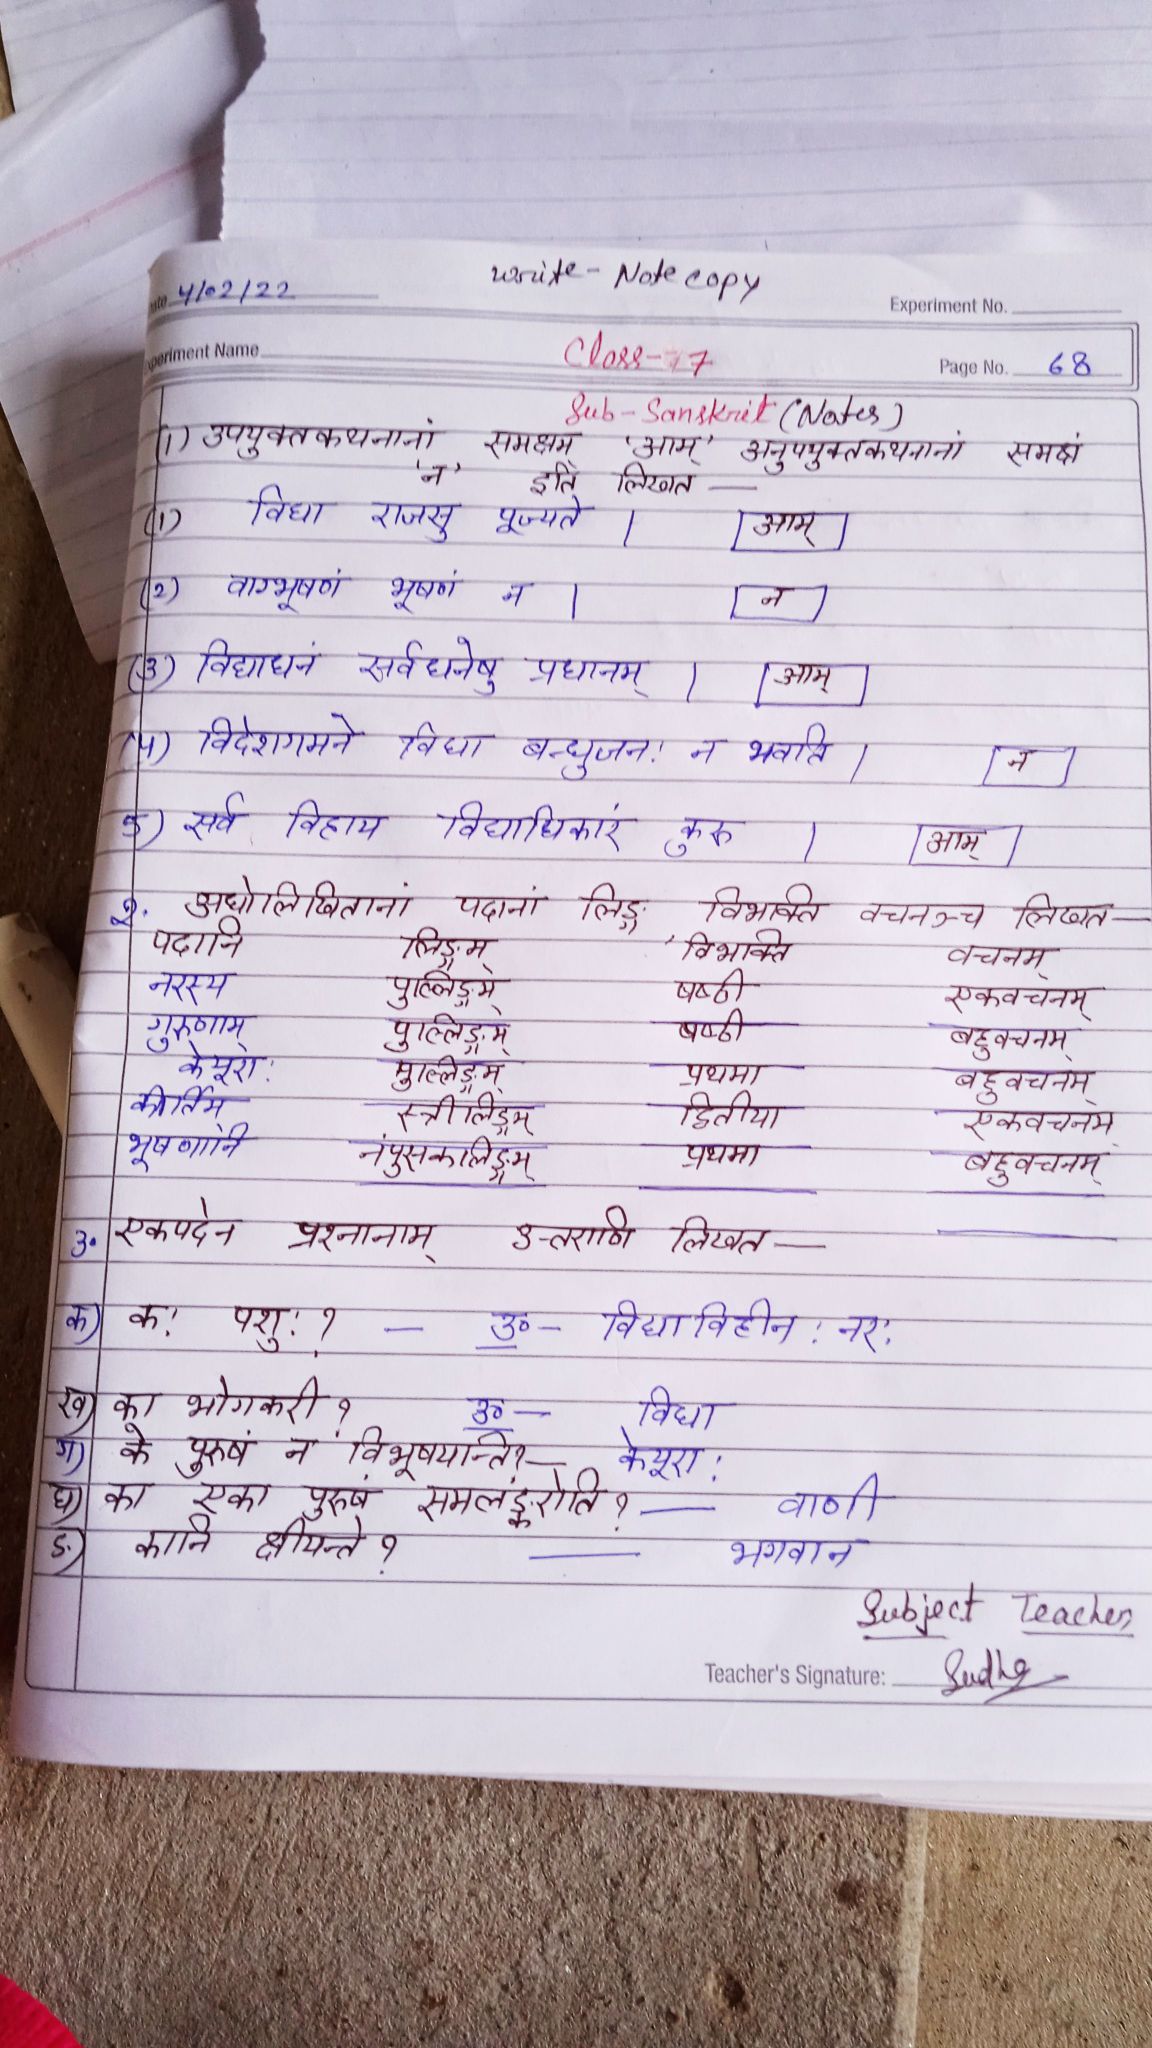 write - Note copy
Date 4/02/22 Experiment No.
Experiment Name Class - 7 Page No. 68
Sub - Sanskrit (Notes)
(1) उपयुक्तकथनानां समक्षम् 'आम्' अनुपयुक्तकथनानां समक्षं
'न' इति लिखत —
(1) विद्या राजसु पूज्यते । आम्
(2) वाग्भूषणं भूषणं न । न
(3) विद्याधनं सर्वधनेषु प्रधानम् । आम्
(4) विदेशगमने विद्या बन्धुजनः न भवति । न
5) सर्व विहाय विद्याधिकारं कुरु । आम्
2. अधोलिखितानां पदानां लिङ्गं विभक्ति वचनञ्च लिखत —
पदानि लिङ्गम् विभक्ति वचनम्
नरस्य पुल्लिङ्गम् षष्ठी एकवचनम्
गुरुणाम् पुल्लिङ्गम् षष्ठी बहुवचनम्
केयूराः पुल्लिङ्गम् प्रथमा बहुवचनम्
कीर्तिम् स्त्रीलिङ्गम् द्वितीया एकवचनम्
भूषणानि नंपुसकालिङ्गम् प्रथमा बहुवचनम्
3. एकपदेन प्रश्नानाम् उत्तराणि लिखत —
क) कः पशुः ? — उ० — विद्याविहीनः नरः
ख) का भोगकरी ? उ० — विद्या
ग) के पुरुषं न विभूषयन्ति ? — केयूराः
घ) का एका पुरुषं समलंङ्करोति ? — वाणी
ङ) कानि क्षीयन्ते ? — भगवान
Subject Teacher
Teacher's Signature: Sudha